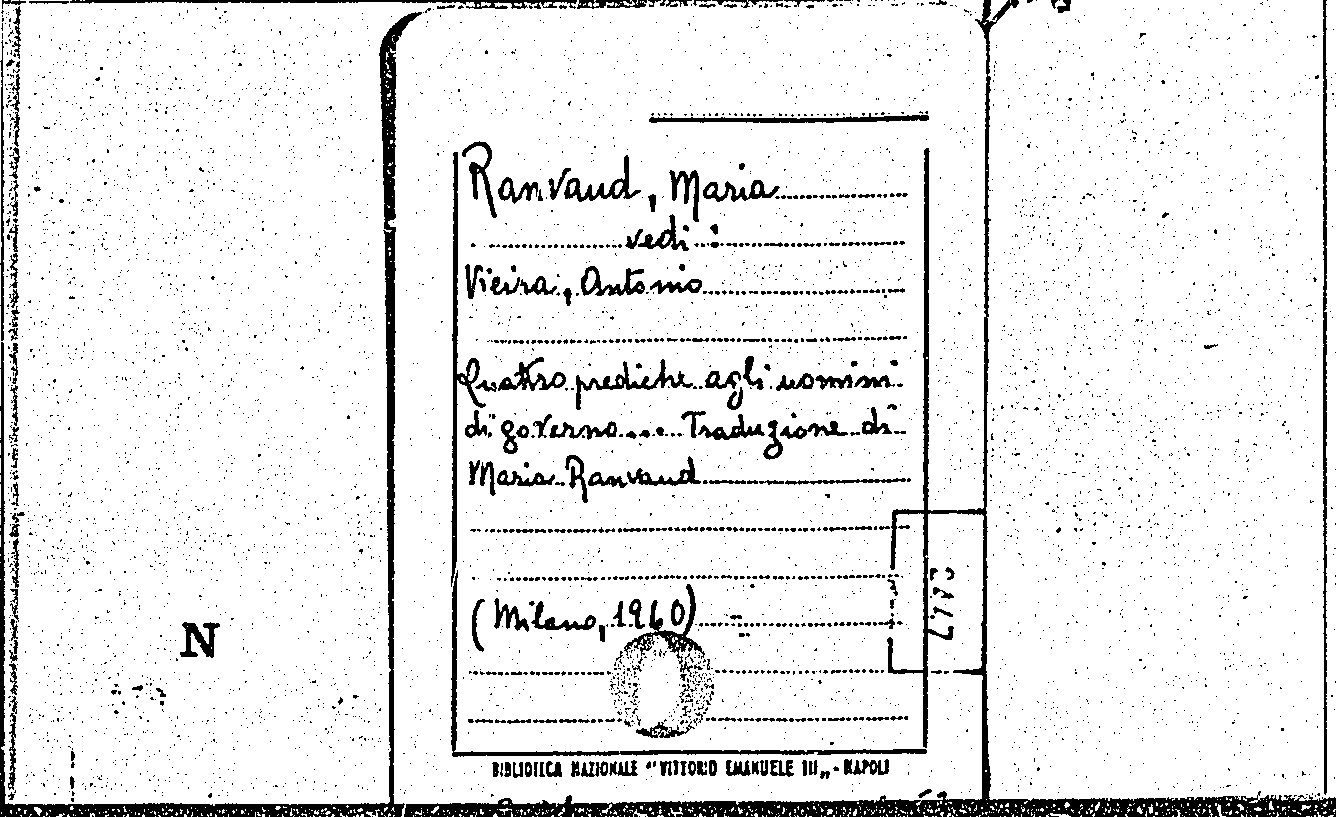 Ranvaud, Maria
vedi:
Vieira, Antonio
Quattro prediche agli uomini
di governo... Traduzione di
Maria Ranvaud
(Milano, 1960)
N
BIBLIOTECA NAZIONALE "VITTORIO EMANUELE III„ - NAPOLI